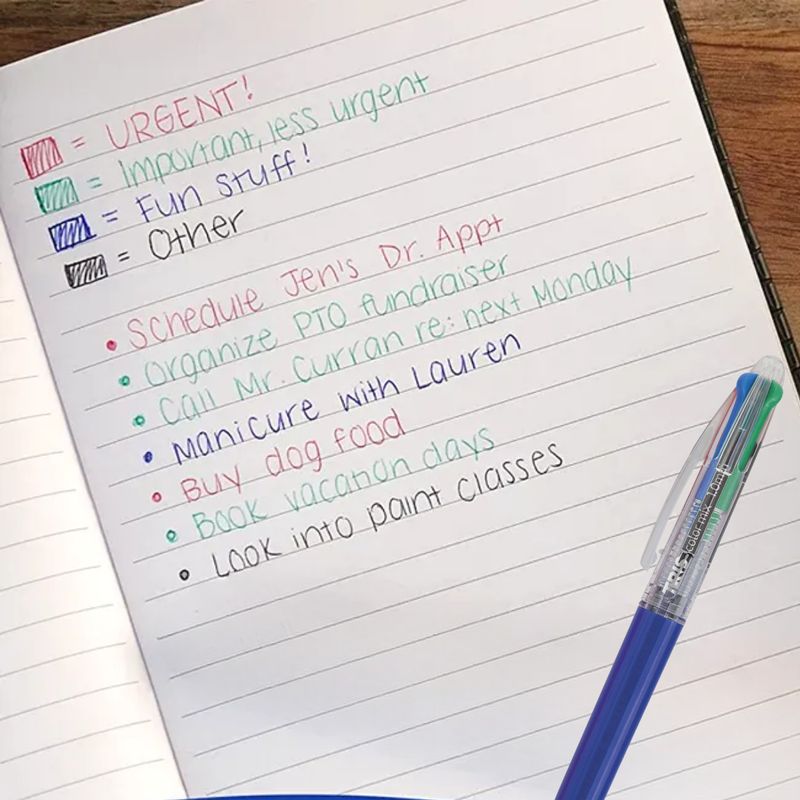 = URGENT!
= Important, less urgent
= Fun Stuff!
= Other
• Schedule Jen's Dr. Appt
• Organize PTO fundraiser
• Call Mr. Curran re: next Monday
• Manicure with Lauren
• Buy dog food
• Book vacation days
• Look into paint classes
TRIS color mix 1.0m